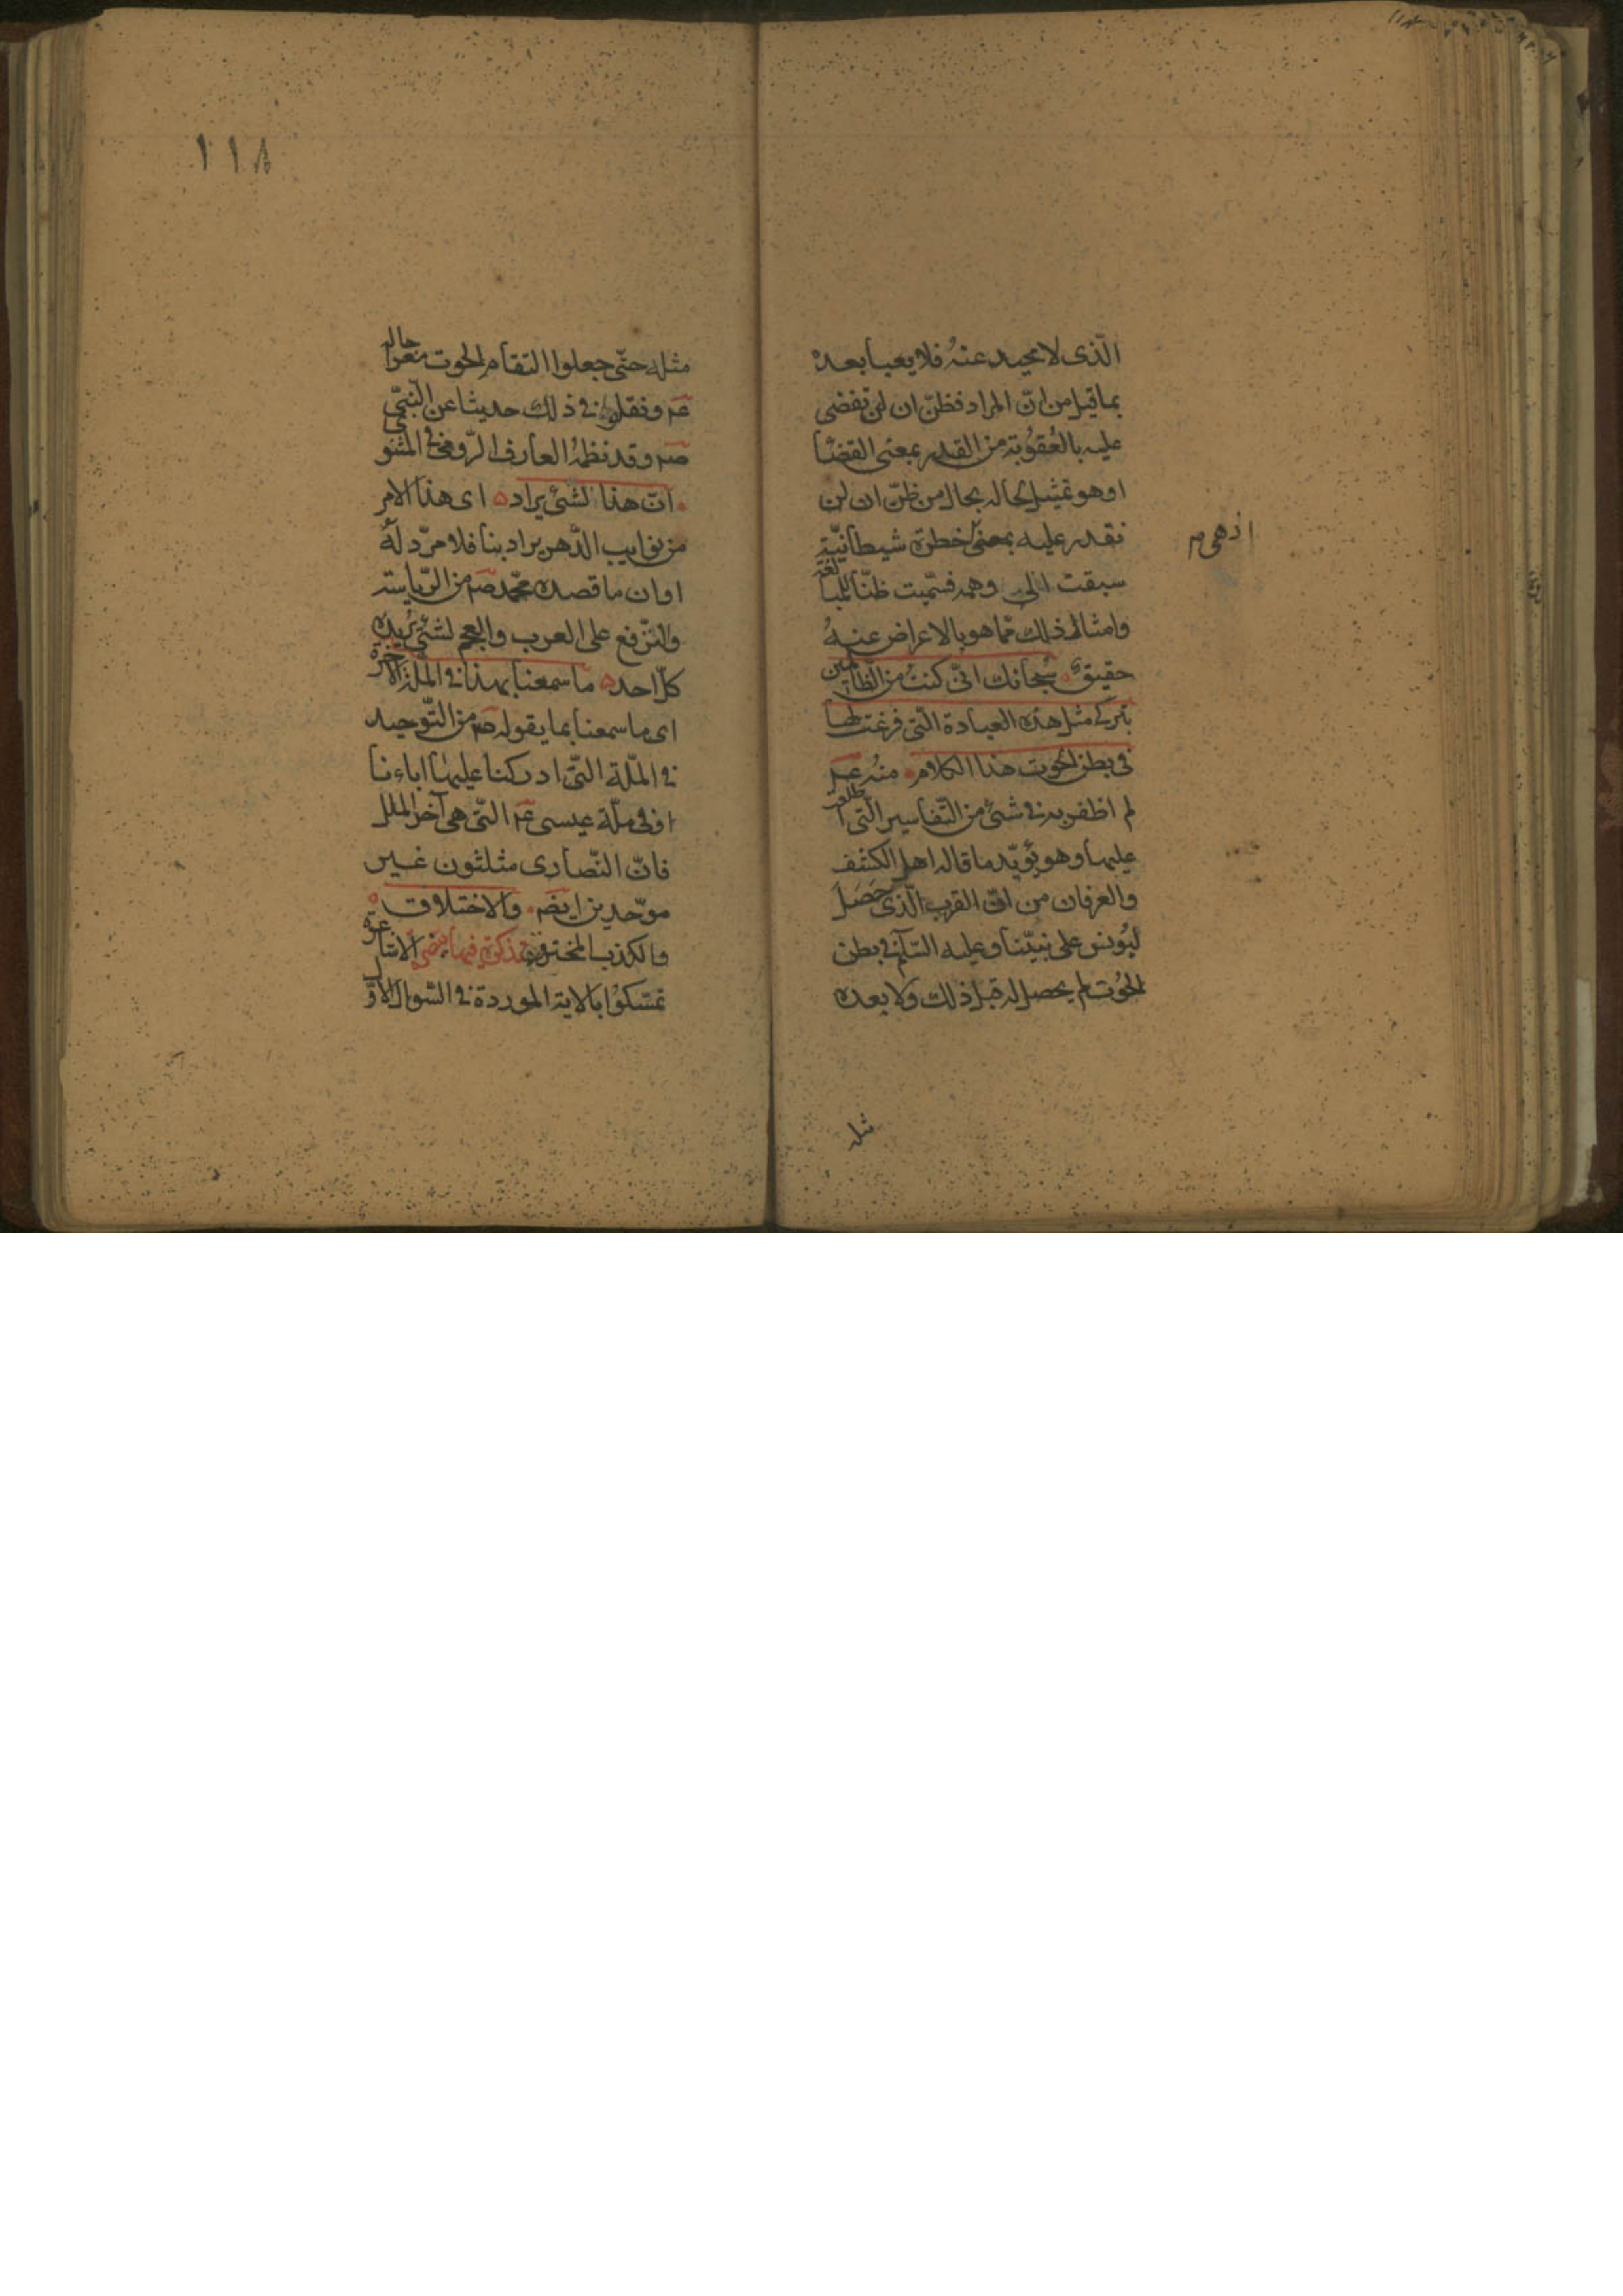 الّذى لا محيد عنهُ فلا يعبأ بعده
بما قيل من انّ المراد فظنّ ان لن تقضى
عليه بالعُقوُبة من القدر بمعنى القضآ
او هو تمثيل لحاله بحال من ظنّ ان لن
نقدر عليه بمعنى خطرة شيطانيّة
اذ هى م
سبقت الى وهمه فسمّيت ظنّا للمبالغة
وامثال ذلك ممّا هو بالاعراض عنهُ
حقيق سُبحانك انّى كنتُ من الظّالمين
بتركى مثل هذه العبادة الّتى فرغت لها
فى بطن الحُوت هذا الكلام منهُ عم
لم اظفر به فى شئ من التّفاسير الّتى اطلعت
عليها وهو يُؤيّد ما قاله اهل الكشف
والعرفان من انّ القرب الّذى حَصَل
ليُونس على نبيّنا وعليه السّلم فى بطن
الحُوت لم يحصل له قبل ذلك ولا بعده
مثله
١١٨
مثله حتّى جعلوا التقام الحوت معراجاله
عم ونقلوا فى ذلك حديثا عن النّبىّ
صم وقد نظمهُ العارف الرّومى فى المثنوى
انّ هذا لشئ يراد اى هذا الامر
من نوايب الدّهر يراد بنا فلا مردّ لهُ
او ان ما قصده محمّد صم من الرّياسة
والترّفع على العرب والعجم لشئ يُريده
كلّ احد ما سمعنا بهذا فى الملّة الآخرة
اى ما سمعنا بما يقوله صم من التّوحيد
فى الملّة الّتى ادركنا عليها اباءنا
او فى ملّة عيسى عم الّتى هى آخر الملل
فانّ النّصارى مثلثون غير
موحّدين ايضم والاختلاق
والكذب المخترع تذكرة فيها تبصرة الاشاعرة
تمسّكوُا بالاية الموردة فى السّوال الاوّل